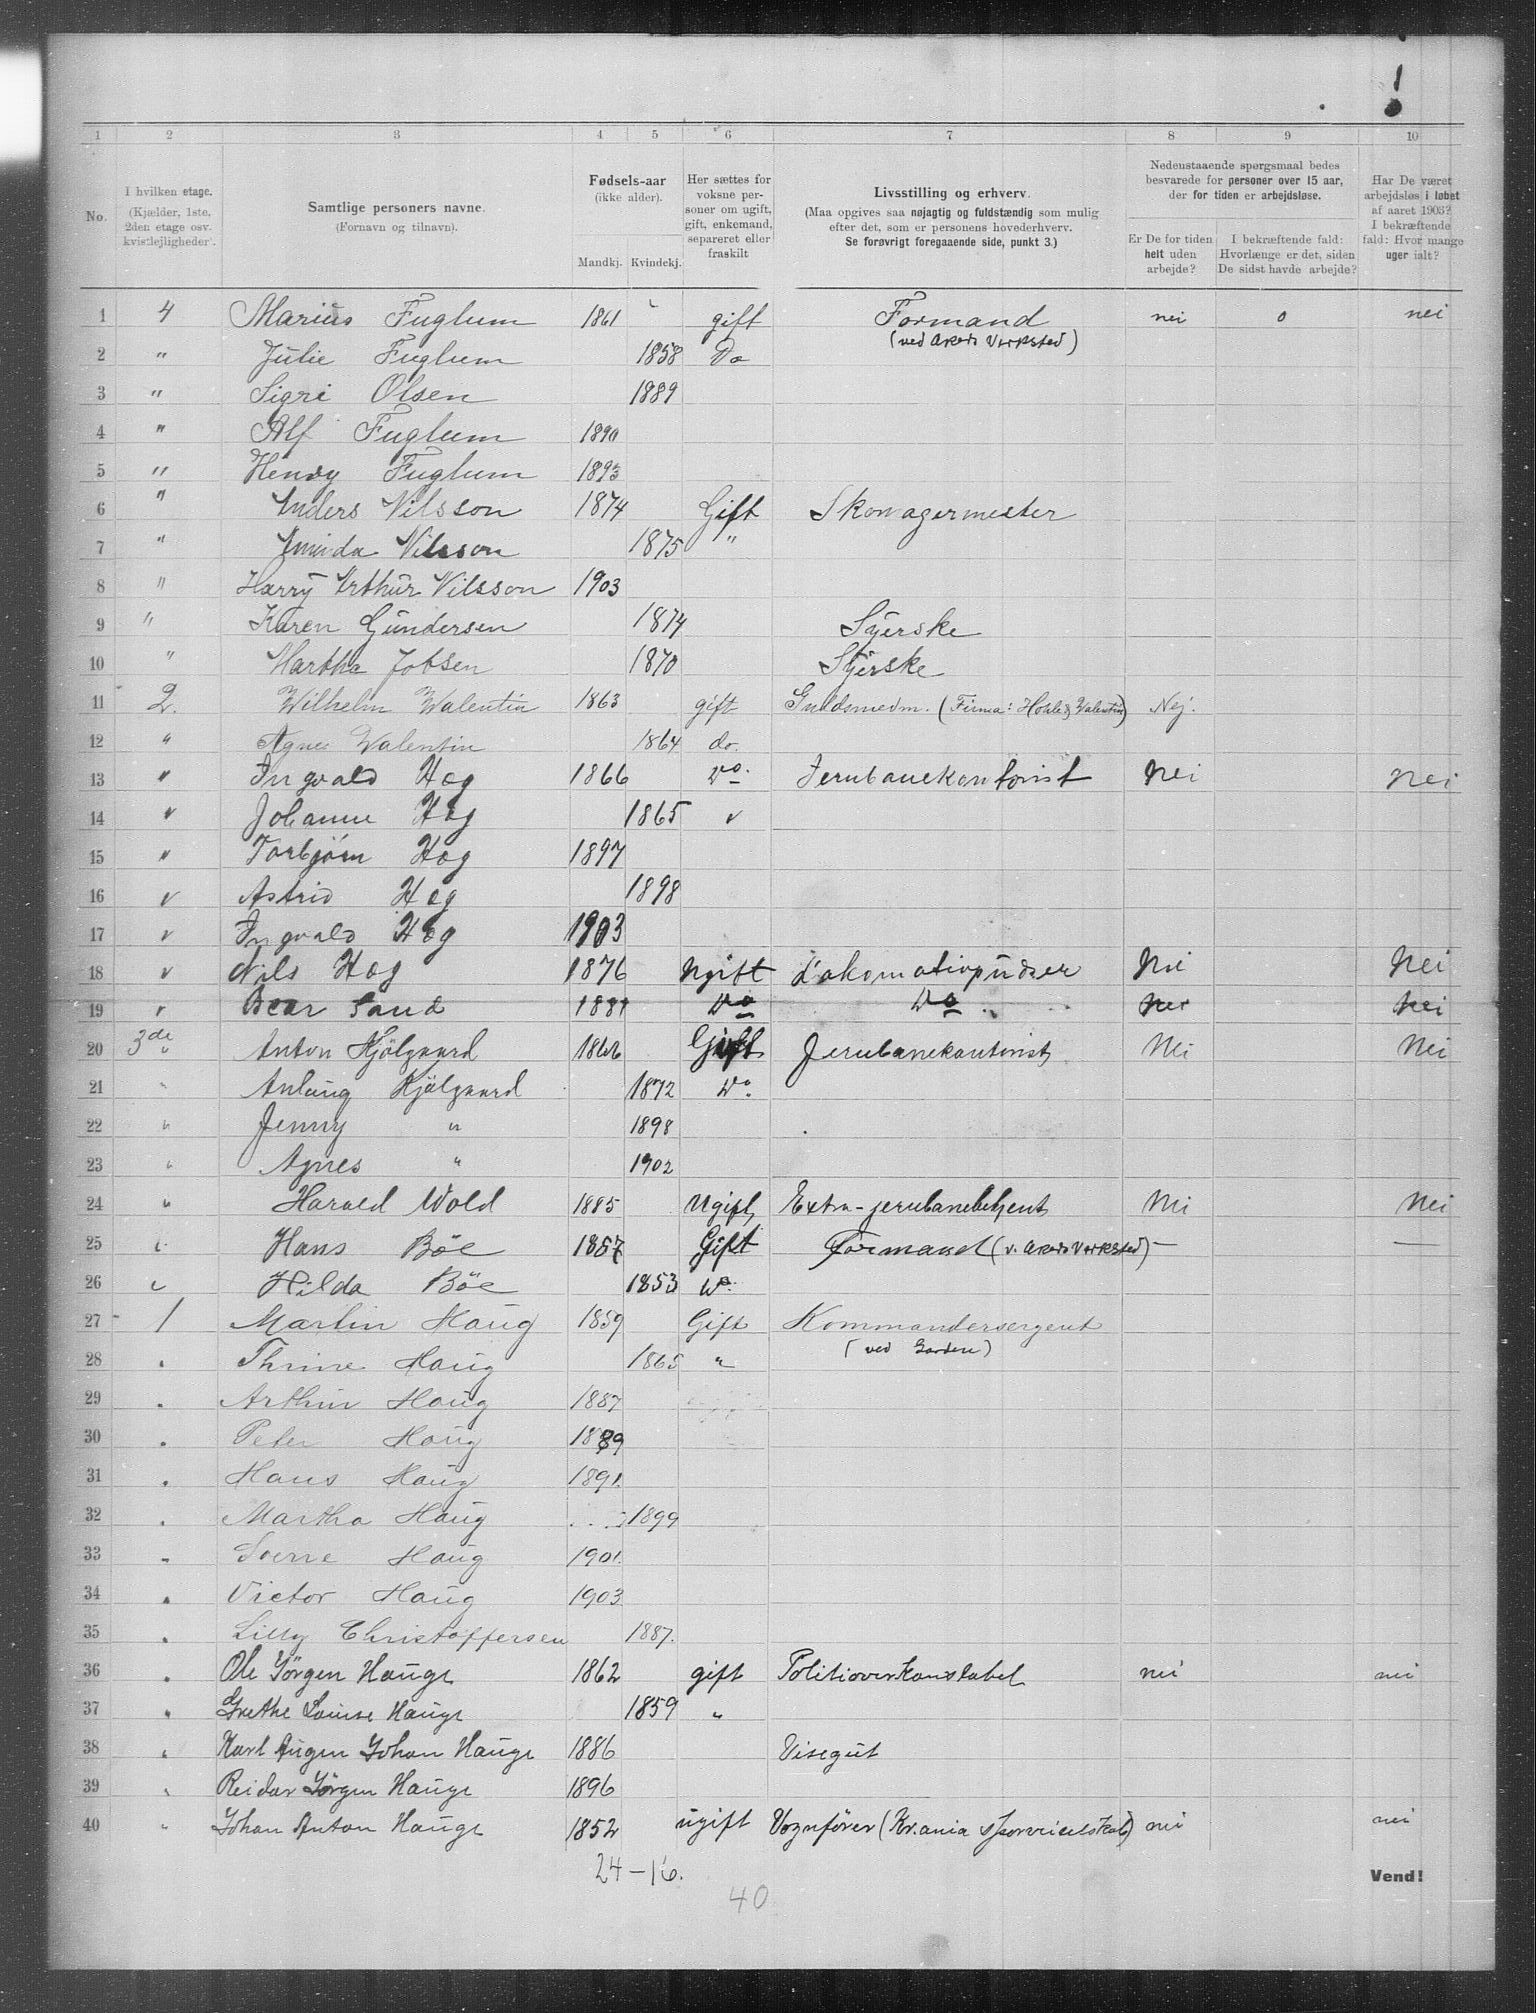 !
1 2 3 4 5 6 7 8 9 10
No.
I hvilken etage.
(Kjælder, 1ste,
2den etage osv.
kvistlejligheder).
Samtlige personers navne.
(Fornavn og tilnavn).
Fødsels-aar
(ikke alder).
Mandkj. Kvindekj.
Her sættes for
voksne per-
soner om ugift,
gift, enkemand,
separeret eller
fraskilt
Livsstilling og erhverv.
(Maa opgives saa nøjagtig og fuldstændig som mulig
efter det, som er personens hovederhverv.
Se forøvrigt foregaaende side, punkt 3.)
Nedenstaaende spørgsmaal bedes
besvarede for personer over 15 aar,
der for tiden er arbejdsløse.
Er De for tiden
helt uden
arbejde?
I bekræftende fald:
Hvorlænge er det, siden
De sidst havde arbejde?
Har De været
arbejdsløs i løbet
af aaret 1903?
I bekræftende
fald: Hvor mange
uger ialt?
1 4 Marius Fuglum 1861 gift Formand nei o nei
(ved Akers Verksted)
2 " Julie Fuglum 1858 Do
3 " Sigri Olsen 1889
4 " Alf Fuglum 1890
5 " Henry Fuglum 1893
6 " Anders Nilsson 1874 Gift Skomagermester
7 " Nilsson 1875 "
8 " Harry Arthur Nilsson 1903
9 " Karen Gundersen 1874 Syerske
10 " Martha Jobsen 1870 Syerske
11 2. Wilhelm Walentin 1863 gift Guldsmedm. (Firma: & Walentin) Nej.
12 " Agnes Walentin 1864 do.
13 " Ingvald Høg 1866 Do. Jernbanekontorist Nei Nei
14 " Johanne Høg 1865 "
15 " Torbjørn Høg 1897
16 " Astrid Høg 1898
17 " Ingvald Høg 1903
18 " Nils Høg 1876 Ugift Lokomotivpudser Nei Nei
19 " Sand 1881 Do Do Nei Nei
20 3de " Anton Kjölgaard 1866 Gift Jernbanekontorist Nei Nei
21 " Anlaug Kjölgaard 1872 Do.
22 " Jenny " 1898
23 " Agnes " 1902
24 " Harald Wold 1885 Ugift Extra-jernbanebetjent Nei Nei
25 " Hans Böe 1857 Gift Formand (v. Akers Verksted) — —
26 " Hilda Böe 1853 Do.
27 1 Martin Haug 1859 Gift Kommandersergent
(ved Garden)
28 " Thrine Haug 1865 "
29 " Arthur Haug 1887
30 " Peter Haug 1889
31 " Hans Haug 1891.
32 " Martha Haug 1899
33 " Sverre Haug 1901.
34 " Victor Haug 1903
35 " Lilly Christoffersen 1887.
36 " Ole Jörgen Hauge 1862 gift Politioverkonstabel nei nei
37 " Grethe Louise Hauge 1859 "
38 " Karl Augen Johan Hauge 1886 Visegut
39 " Reidar Jörgen Hauge 1896
40 " Johan Anton Hauge 1852 ugift Vognfører (Kr.ania Sporveiselskab) nei nei
24-16.
40
Vend!